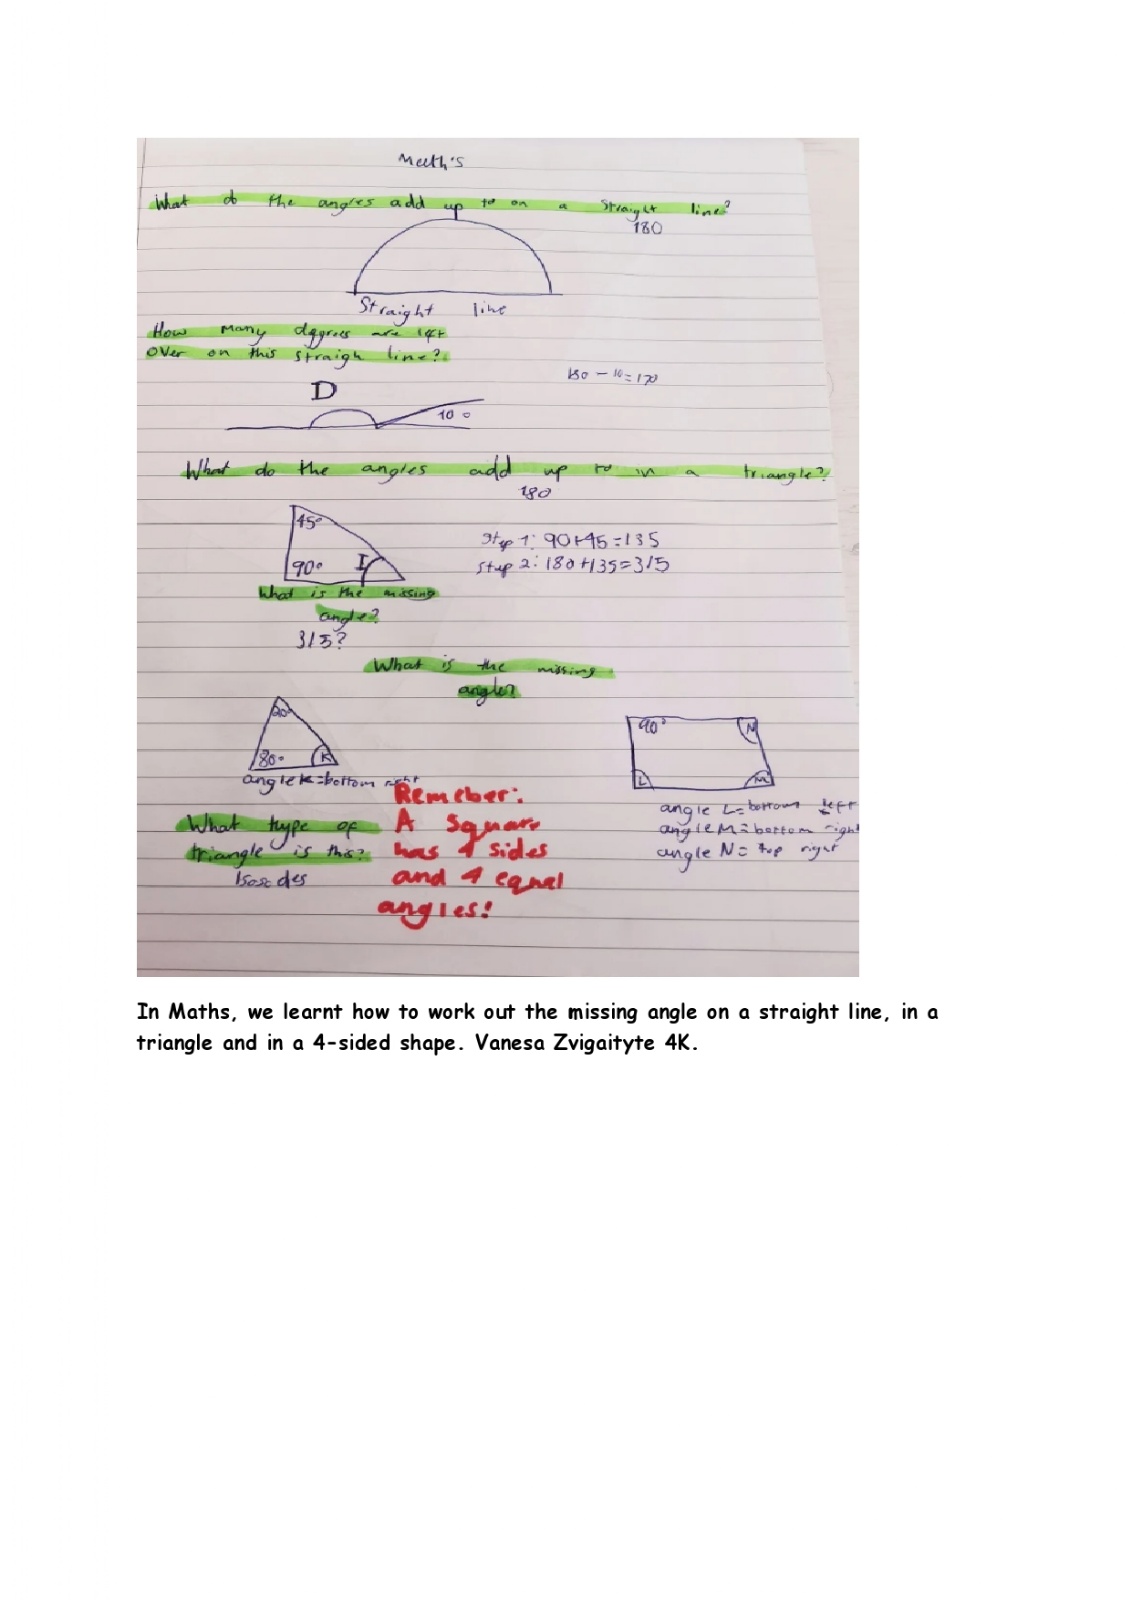 Meeth's
What do the angles add up to on a straight line?
180
Straight line
How many dggrees are left
over on this straigh line?
180 - 10 = 170
D
10°
What do the angles add up to in a triangle?
180
45°
90°
I
Step 1: 90+45=135
Step 2: 180+135=315
What is the missing
angle?
315?
What is the missing
angle?
20°
80°
K
angle K=bottom right
90°
N
L
M
angle L=bottom left
angle M=bottom right
angle N= top right
What type of
triangle is this?
Isosodes
Remeber:
A square
has 4 sides
and 4 equal
angles!
In Maths, we learnt how to work out the missing angle on a straight line, in a
triangle and in a 4-sided shape. Vanesa Zvigaityte 4K.